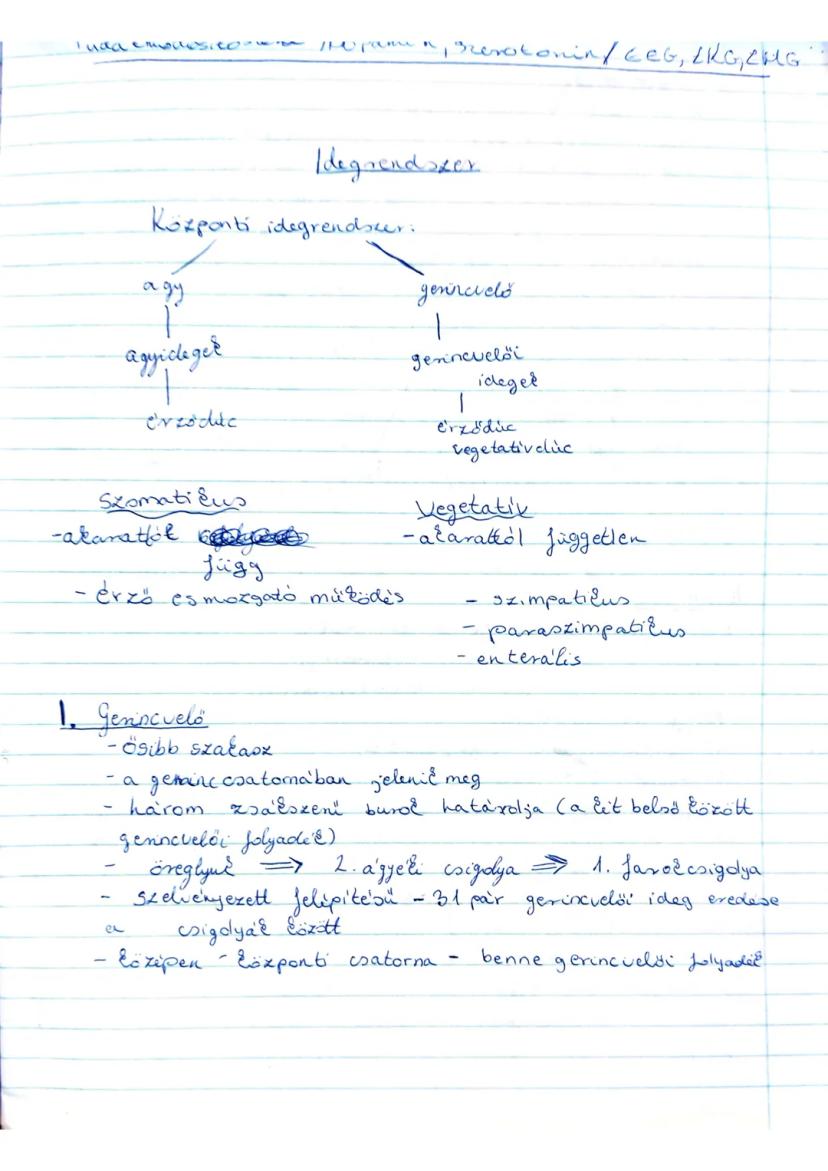 Szerotonin / EEG, EKG, EMG
Idegrendszer
Központi idegrendszer:
agy
gerincvelő
agyidegek
gerincvelői
idegek
érződúc
érződúc
vegetatívdúc
Szomatikus
Vegetatív
-akarattól
függ
-akarattól független
- érző es mozgató működés
- szimpatikus
- paraszimpatikus
- enterális
I. Gerincvelő
- ősibb szakasz
- a gerinccsatornában jelenik meg
- három zsákszerű burok határolja (a két belső között
gerincvelői folyadék)
- öreglyuk ⇒ 2. ágyéki csigolya ⇒ 1. farokcsigolya
- szelvényezett felépítésű - 31 pár gerincvelői ideg eredése
a csigolyák között
- középen - központi csatorna - benne gerincvelői folyadék